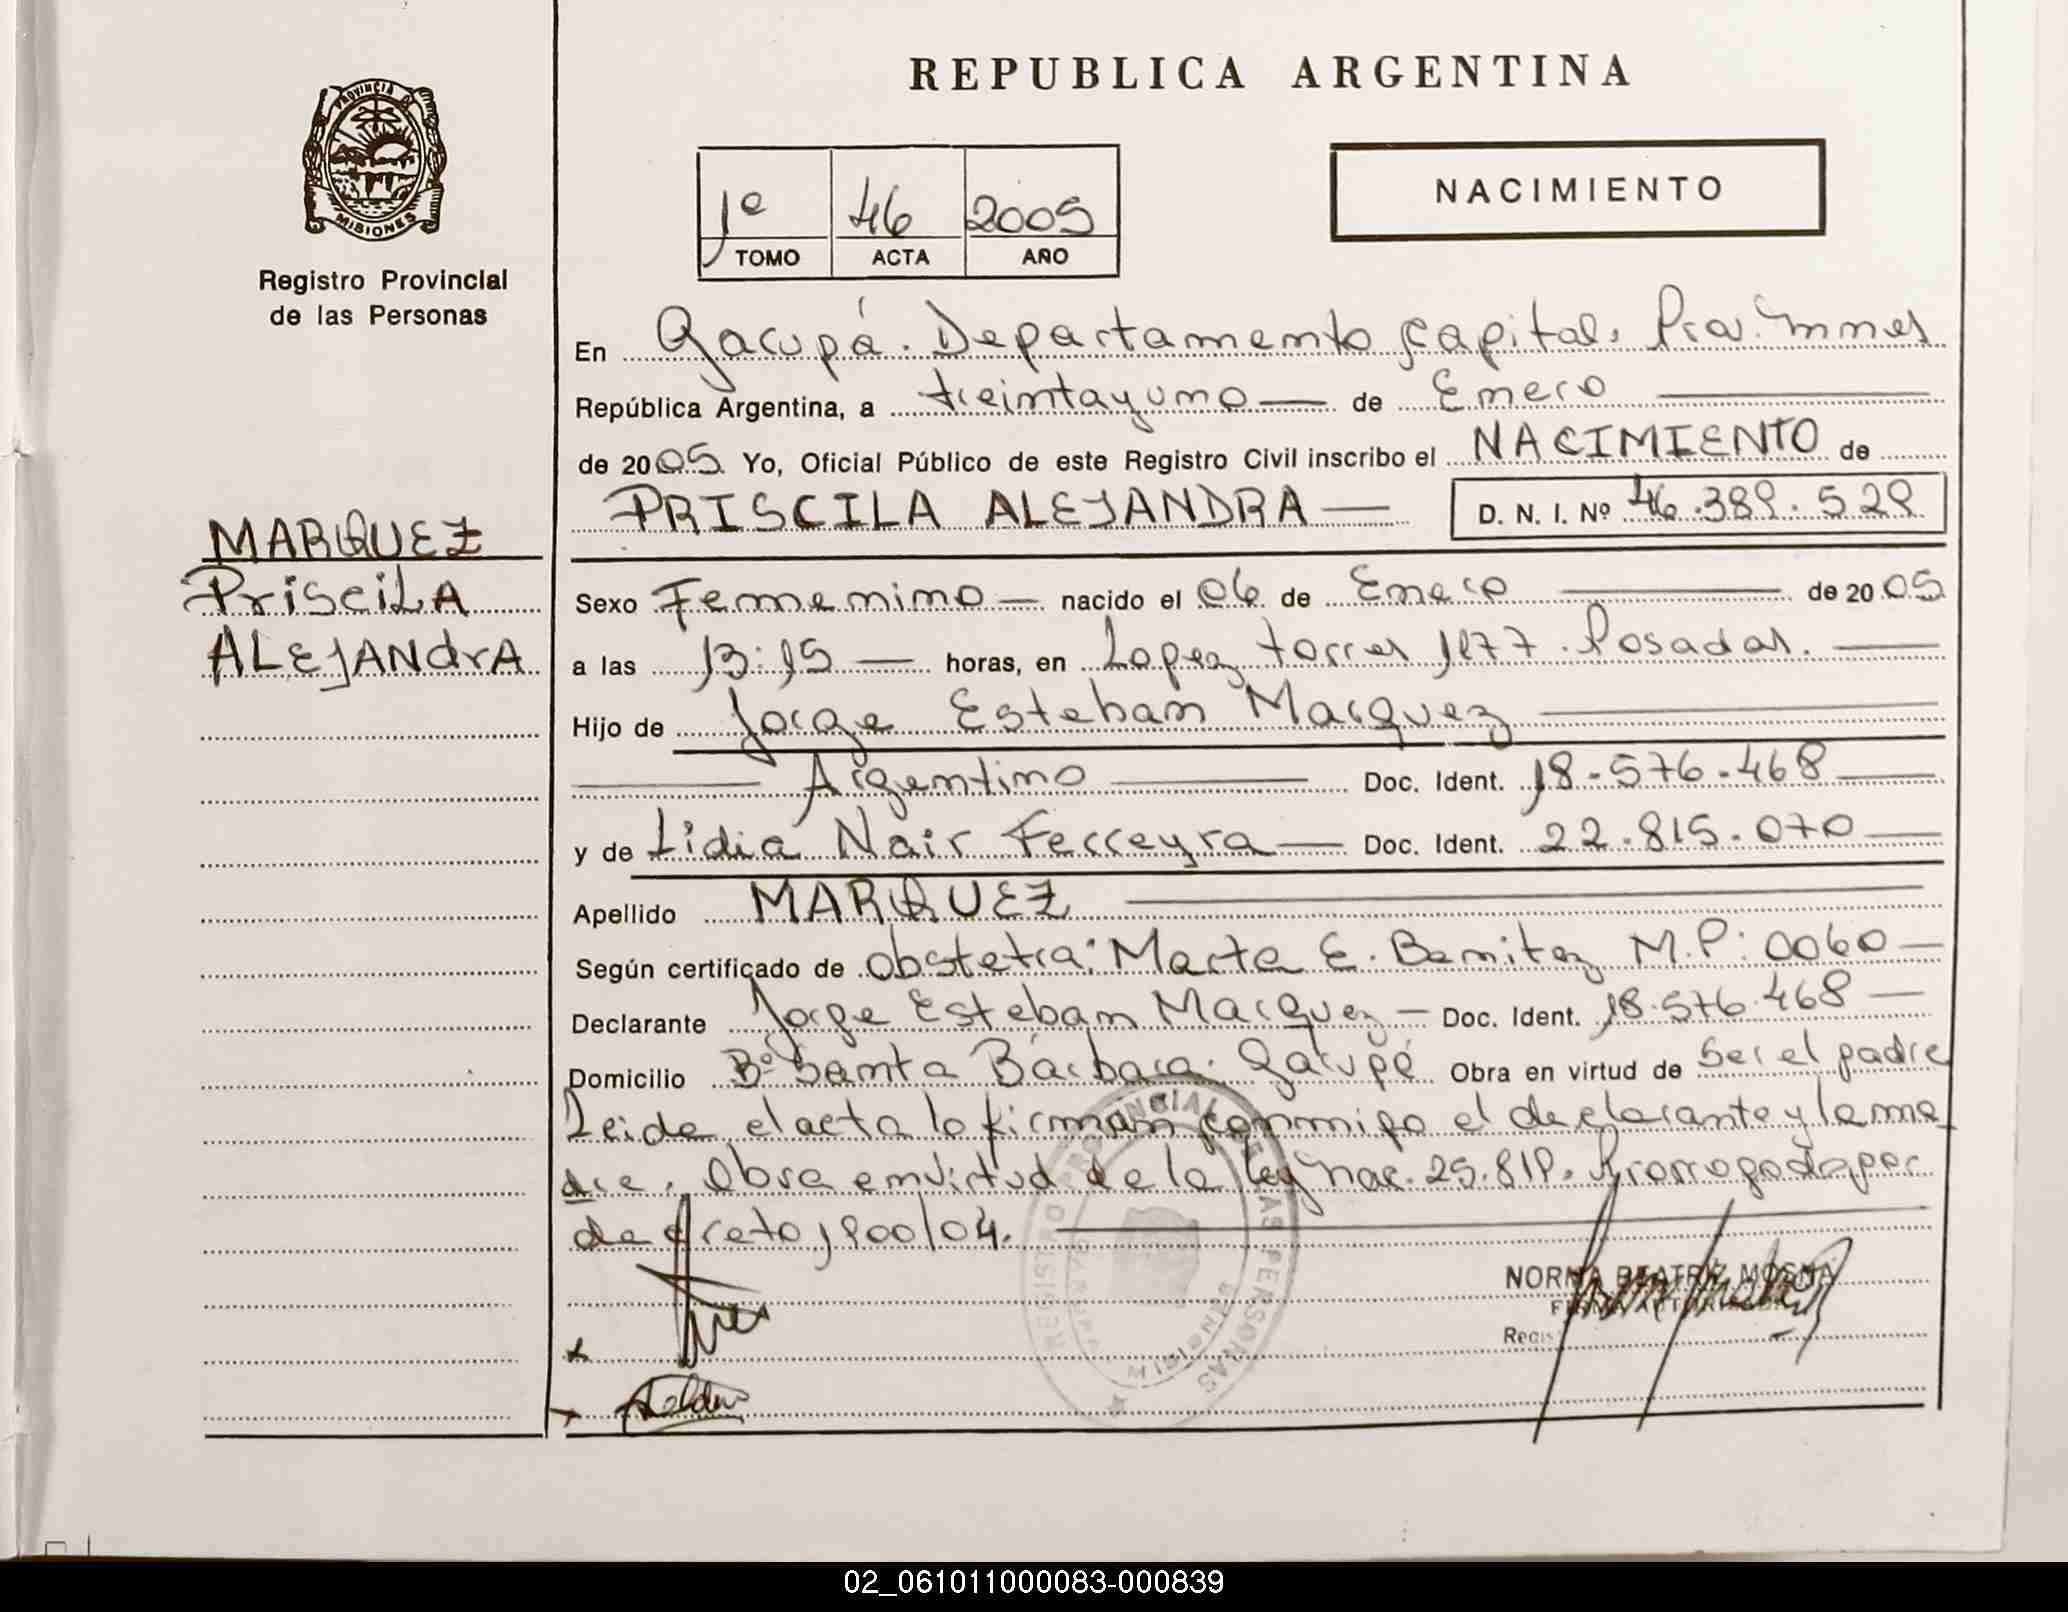 REPUBLICA ARGENTINA
PROVINCIA DE
MISIONES
Registro Provincial
de las Personas
1º 46 2005
TOMO ACTA AÑO
NACIMIENTO
En Garupá. Departamento Capital. Prov. Mnes
República Argentina, a treintayuno de Enero
de 2005 Yo, Oficial Público de este Registro Civil inscribo el NACIMIENTO de
PRISCILA ALEJANDRA D. N. I. Nº 46.389.529
MARQUEZ
PrisciLA
ALEJANdrA
Sexo Femenino nacido el 06 de Enero de 2005
a las 13:15 horas, en Lopez torres 1177. Posadas.
Hijo de Jorge Esteban Marquez
Argentino Doc. Ident. 18.576.468
y de Lidia Nair Ferreyra Doc. Ident. 22.815.070
Apellido MARQUEZ
Según certificado de Obstetra: Marta E. Benitez M.P: 0060
Declarante Jorge Esteban Marquez Doc. Ident. 18.576.468
Domicilio Bº Santa Bárbara. Garupá Obra en virtud de Ser el padre
Leida el acta lo firman conmigo el declarante y la ma
dre. Obra en virtud de la ley nac. 25.819. Prorrogada por
decreto 1900/04.
REGISTRO PROVINCIAL DE LAS PERSONAS
GARUPA
MISIONES
NORMA BEATRIZ MOSNA
FIRMA AUTORIZADA
Regis
02_061011000083-000839